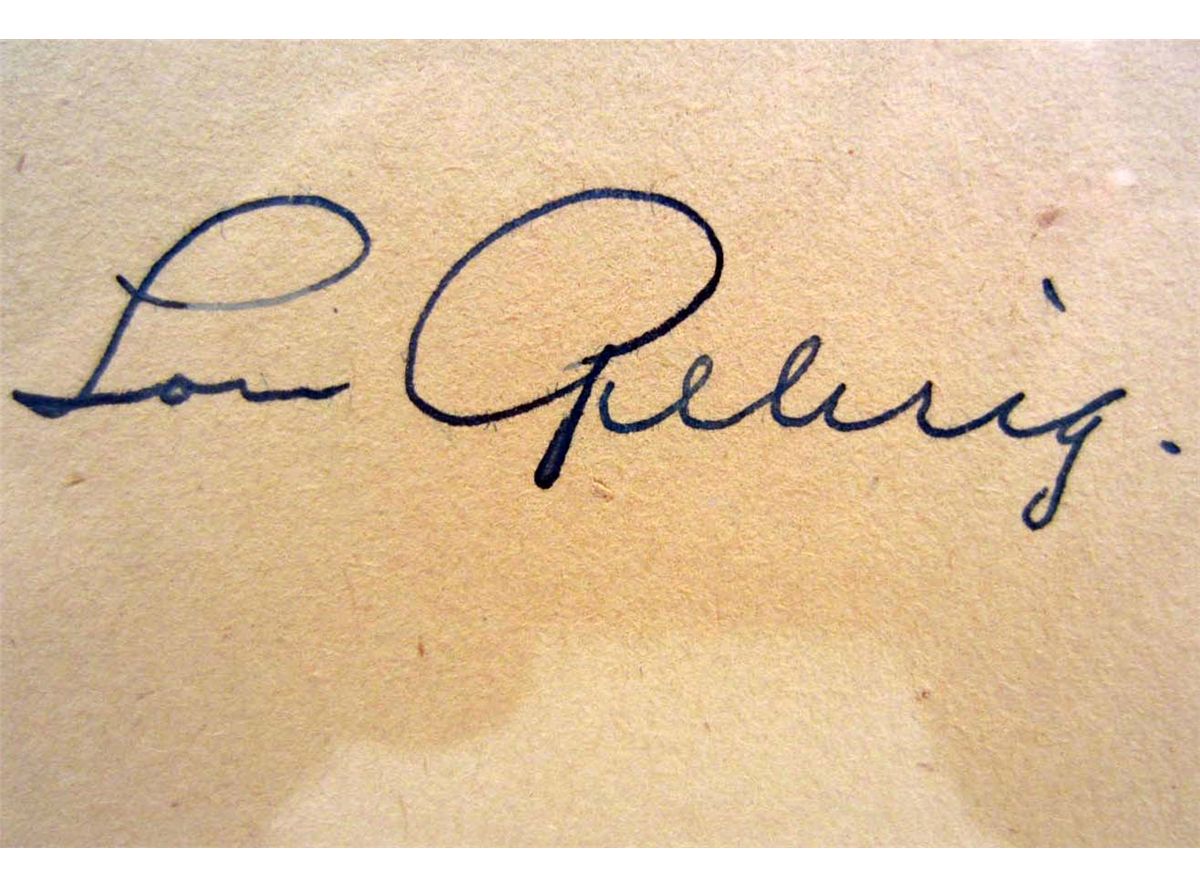 Lou Gehrig.